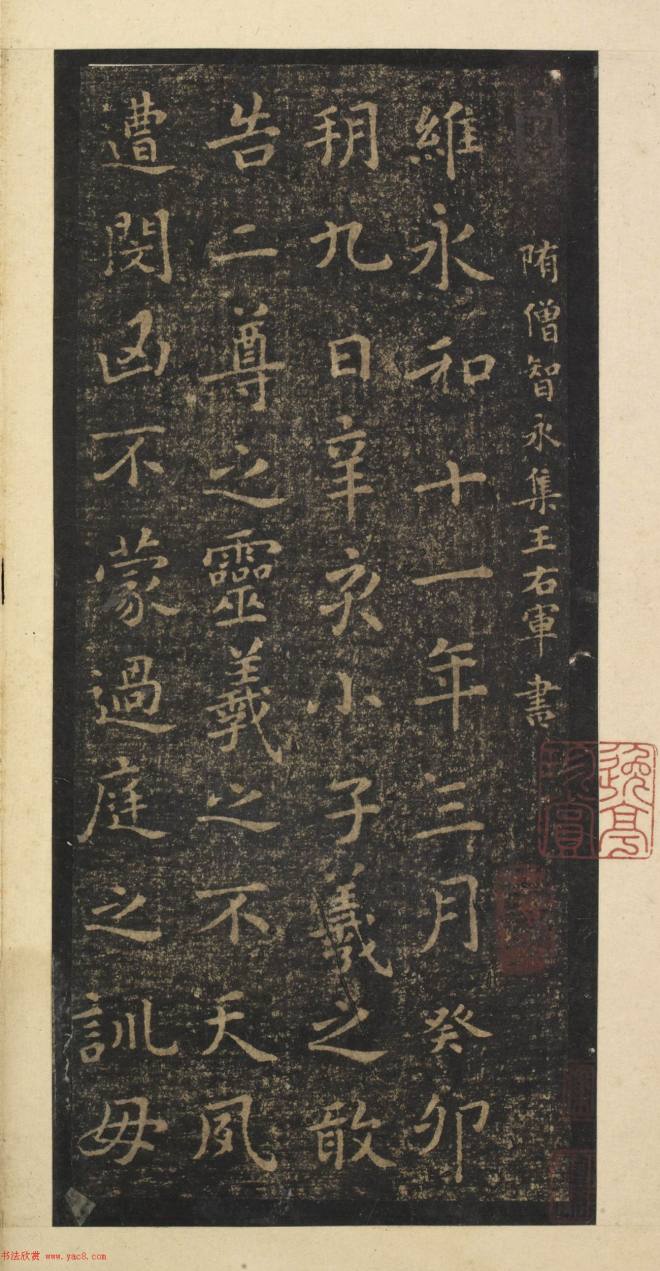 隋僧智永集王右軍書
維永和十一年三月癸卯
朔九日辛亥小子羲之敢
告二尊之靈羲之不天夙
遭閔凶不蒙過庭之訓母
逸亭珍賞
书法欣赏 www.yac8.com